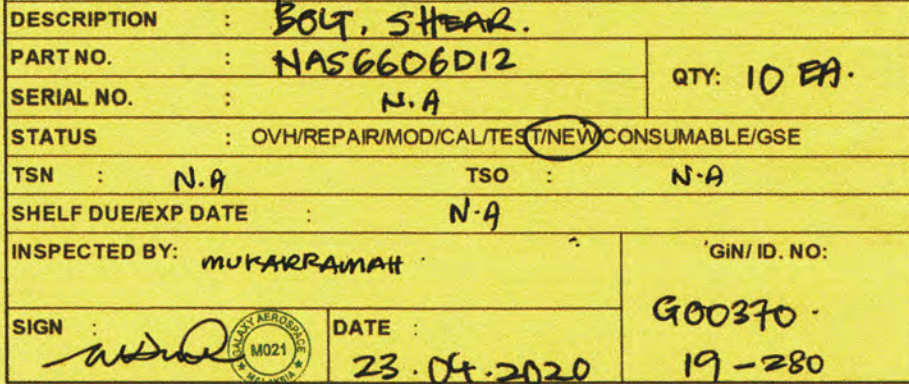 DESCRIPTION : BOLT, SHEAR.
PART NO. : NAS6606D12
QTY: 10 EA.
SERIAL NO. : N.A
STATUS : OVH/REPAIR/MOD/CAL/TEST/NEW/CONSUMABLE/GSE
TSN : N.A TSO : N.A
SHELF DUE/EXP DATE : N.A
INSPECTED BY: MUKARRAMAH
GiN/ ID. NO:
G00370.
19-280
SIGN :
GALAXY AEROSPACE
M021
MALAYSIA
DATE :
23.04.2020